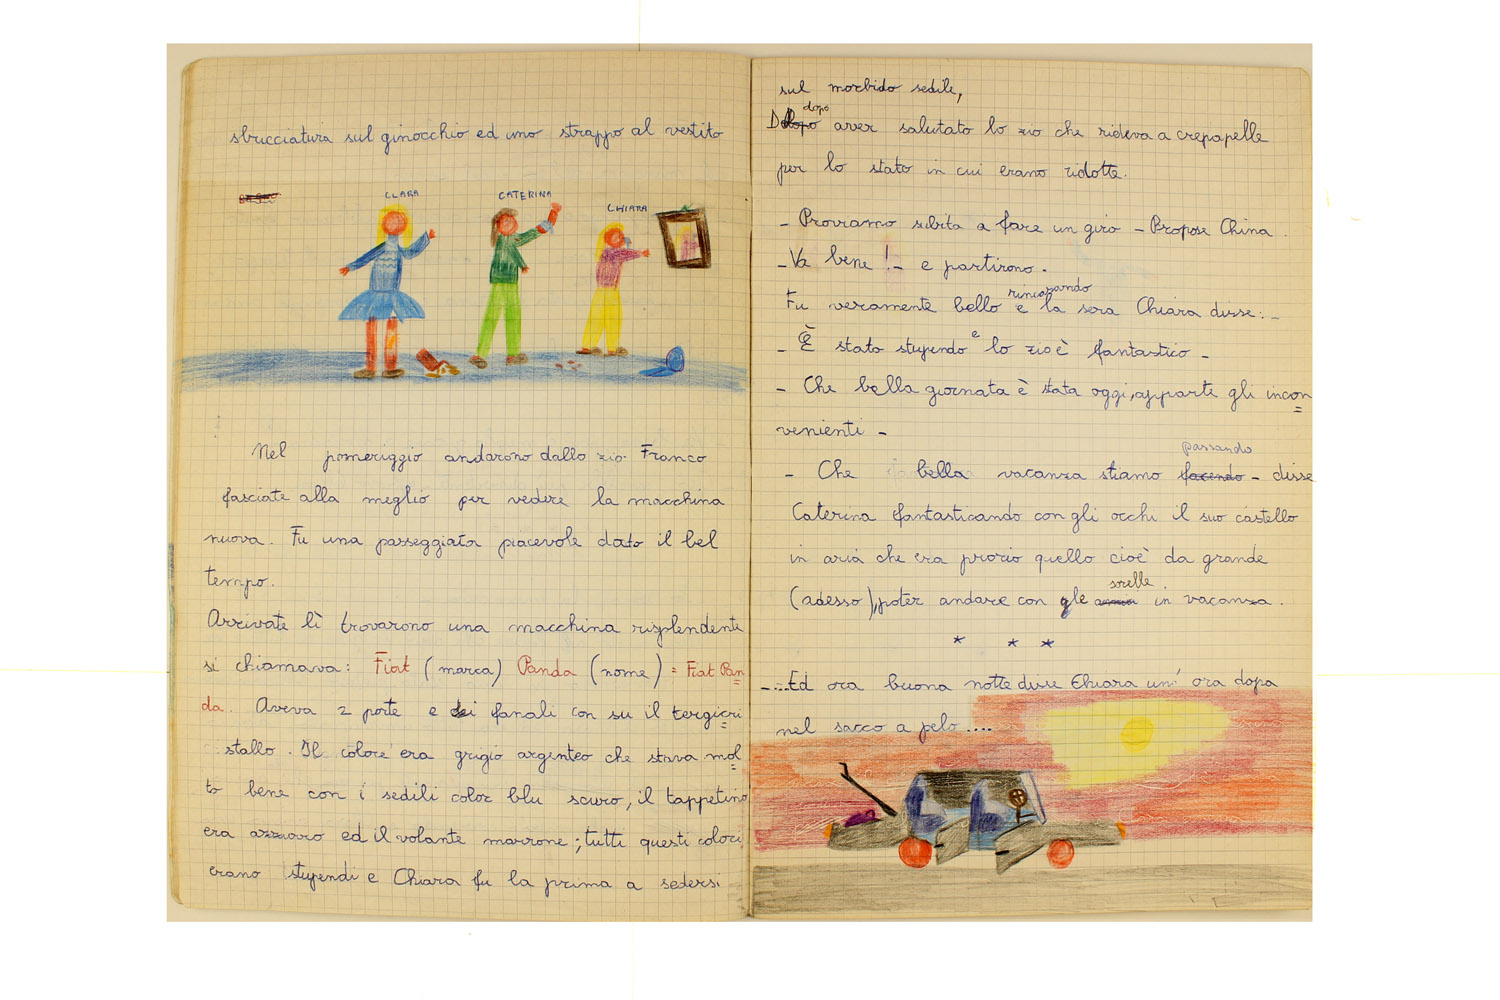 sbucciatura sul ginocchio ed uno strappo al vestito
CLARA
CATERINA
CHIARA
Nel pomeriggio andarono dallo zio Franco
fasciate alla meglio per vedere la macchina
nuova. Fu una passeggiata piacevole dato il bel
tempo.
Arrivate lì trovarono una macchina risplendente
si chiamava: Fiat (marca) Panda (nome) = Fiat Pan
da. Aveva 2 porte e dei fanali con su il tergicri
stallo. Il colore era grigio argenteo che stava mol
to bene con i sedili color blu scuro, il tappetino
era azzurro ed il volante marrone; tutti questi colori
erano stupendi e Chiara fu la prima a sedersi
sul morbido sedile,
dopo
Dopo aver salutato lo zio che rideva a crepapelle
per lo stato in cui erano ridotte.
- Proviamo subito a fare un giro - Propose Chiara.
- Va bene! - e partirono.
rincasando
Fu veramente bello e la sera Chiara disse: -
- È stato stupendo e lo zio è fantastico -
- Che bella giornata è stata oggi, apparte gli incon
venienti -
passando
- Che bella vacanza stiamo facendo - disse
Caterina fantasticando con gli occhi il suo castello
in aria che era prorio quello cioè da grande
sorelle
(adesso), poter andare con le in vacanza.
* * *
-...Ed ora buona notte disse Chiara un' ora dopo
nel sacco a pelo....